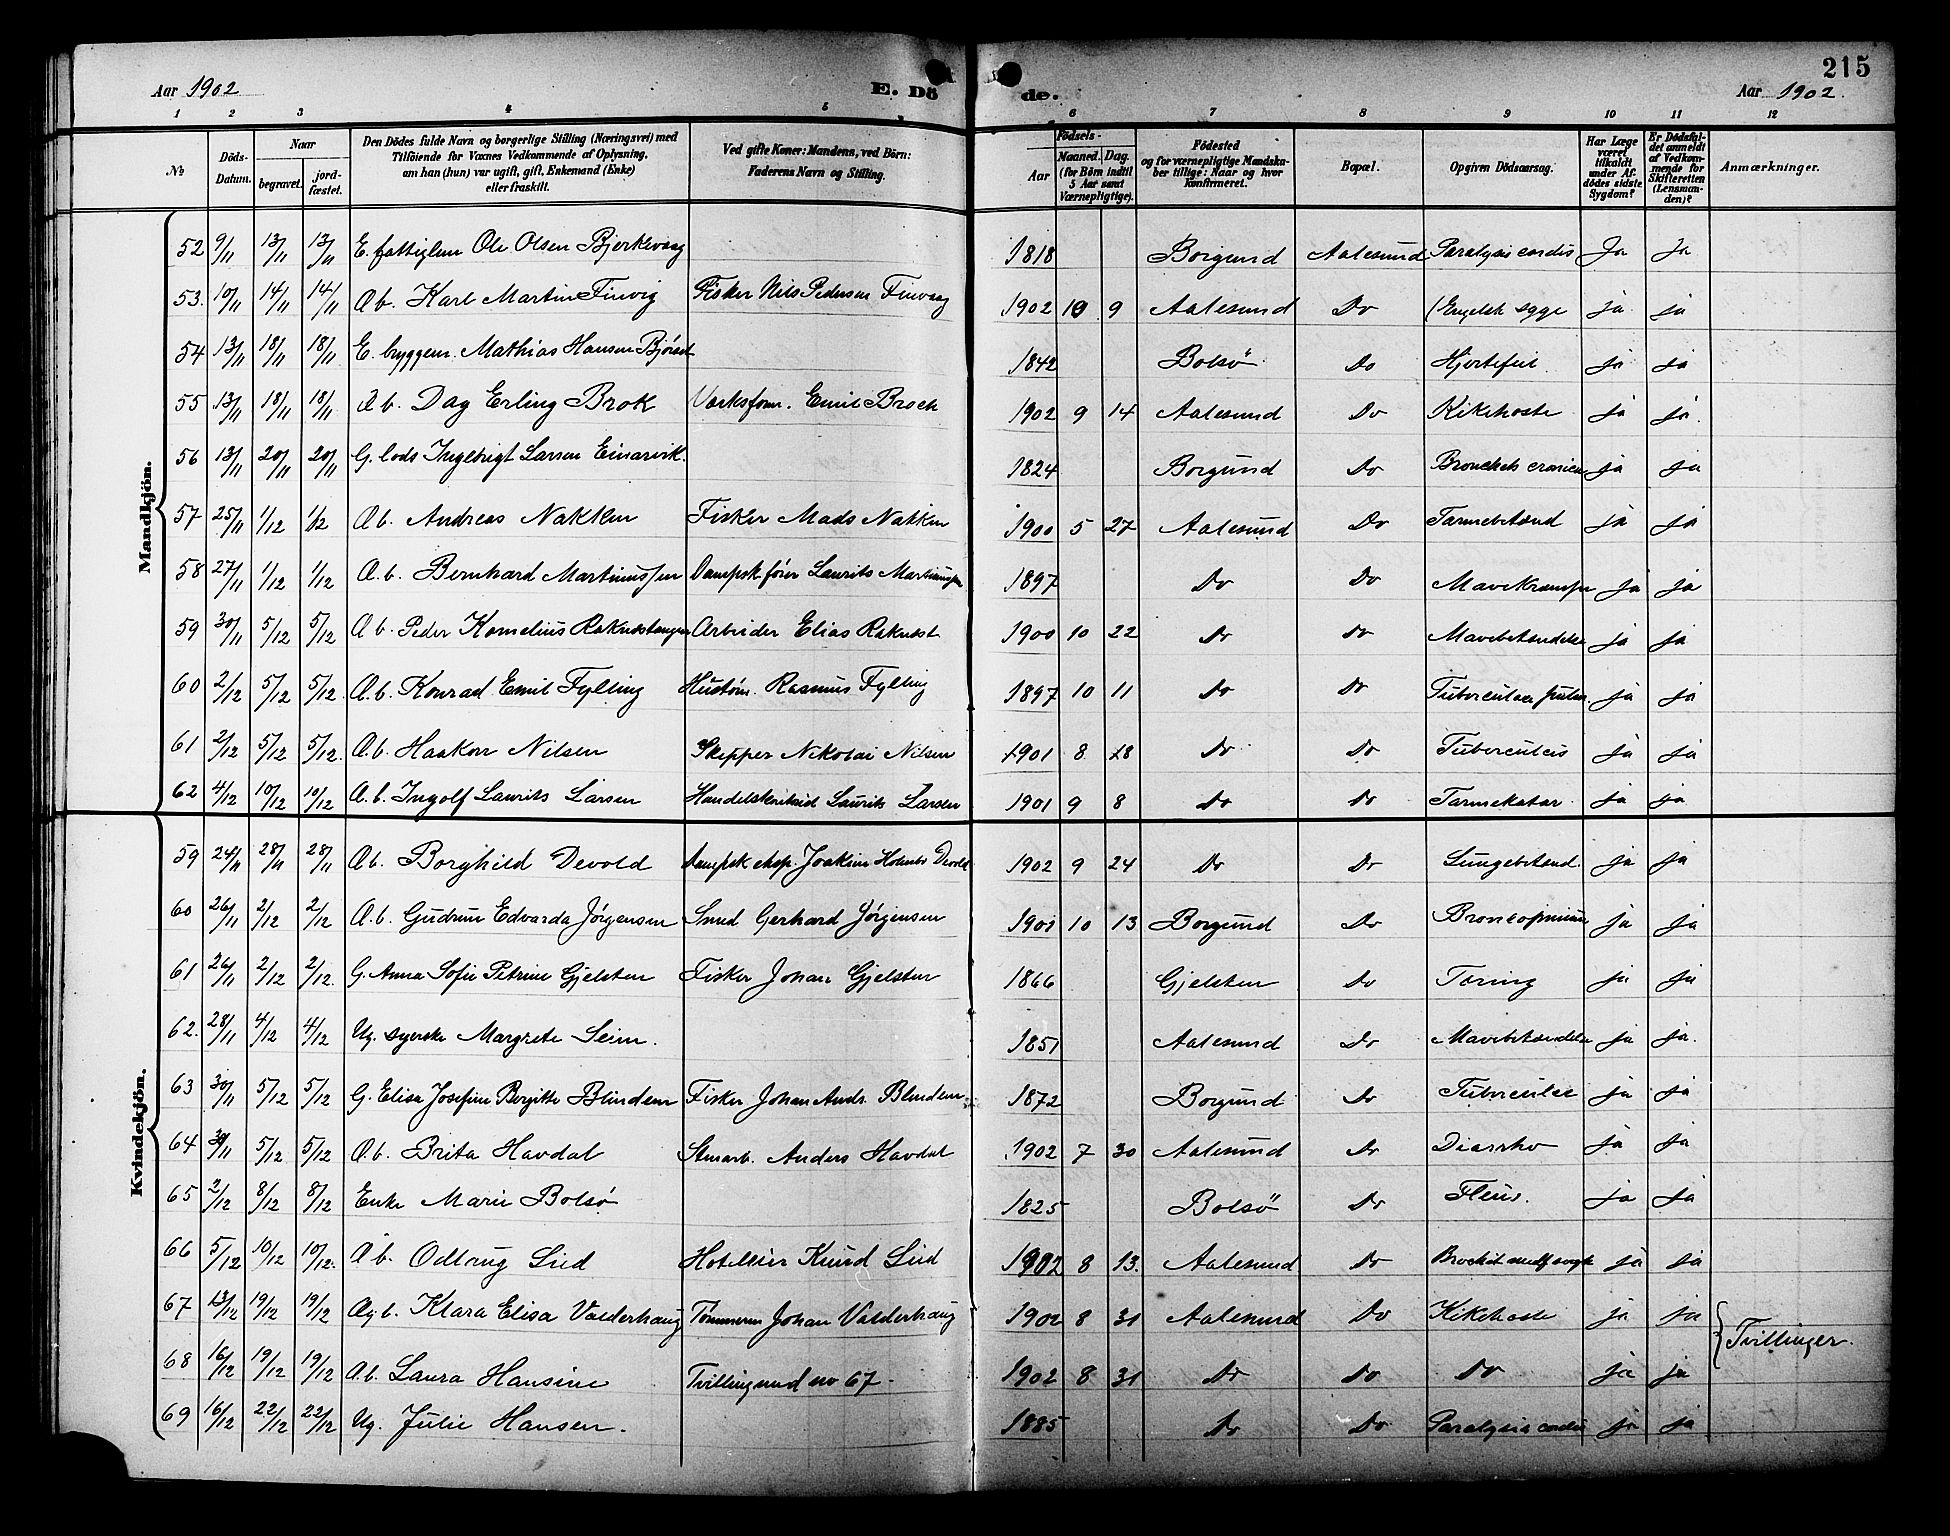 215
Aar 1902 E. Döde. Aar 1902.
1 2 3 4 5 6 7 8 9 10 11 12
№ Döds-Datum. Naar begravet. jordfæstet. Den Dödes fulde Navn og borgerlige Stilling (Næringsvei) med Tilföiende for Voxnes Vedkommende af Oplysning, om han (hun) var ugift, gift, Enkemand (Enke) eller fraskilt. Ved gifte Koner: Mandens, ved Börn: Faderens Navn og Stilling. Födsels- Aar Maaned. Dag. (for Börn indtil 5 Aar samt Værnepligtige). Födested og for værnepligtige Mandskaber tillige: Naar og hvor konfirmeret. Bopæl. Opgiven Dödsaarsag. Har Læge været tilkaldt under Afdödes sidste Sygdom? Er Dödsfaldet anmeldt af Vedkommende for Skifteretten (Lensmanden)? Anmærkninger.
Mandkjön.
52 9/11 13/11 13/11 E. fattiglem Ole Olsen Bjerkevaag 1818 Borgund Aalesund Paralysis cordis Ja Ja
53. 10/11 14/11 14/11 Æb. Karl Martin Finvig Fisker Nils Pedersen Finvaag 1902 10 9 Aalesund Do Engelsk syge ja ja
54 13/11 18/11 18/11 E. byggem. Mathias Hansen 1842 Bolsö Do Hjertefeil ja ja
55 13/11 18/11 18/11 Æb. Dag Erling Brok Værksform. Emil Broch 1902 9 14 Aalesund Do Kikehoste ja ja.
56 13/11 20/11 20/11 G. lods Ingebrigt Larsen Einarvik. 1824 Borgund Do ja ja
57 25/11 1/12 1/12 Æb. Andreas Nakken Fisker Mads Nakken 1900 5 27 Aalesund Do Tarmebetænd ja ja
58 27/11 1/12 1/12 Æ.b. Bernhard Martinussen Dampsk fører Laurits Martinussen 1897 Do Do ja ja
59 30/11 5/12 5/12 Æb. Peder Kornelius Raknestangen Arbeider Elias Raknest 1900 10 22 Do Do Mavebetændelse ja ja
60 2/12 5/12 5/12. Æ.b. Konrad Emil Fylling Hustøm. Rasmus Fylling 1897 10 11 Do Do ja ja
61 2/12 5/12 5/12. Æ.b. Haakon Nilsen Skipper Nikolai Nilsen 1901 8 18 Do Do Tuberculeis ja ja
62 4/12 10/12 10/12 Æ.b. Ingolf Laurits Larsen Laurits Larsen 1901 9 8 Do Do Tarmekatar. ja ja
Kvindekjön.
59 24/11 28/11 28/11 Æb. Borghild Devold Dampsk eksp. Joakim Holmbo Devold 1902 9 24 Do Do Lungebetænd. ja ja
60 26/11 2/12 2/12 Æ.b. Gudrun Edvarda Jørgensen Smed Gerhard Jørgensen 1901 10 13 Borgund Do ja ja
61 26/11 2/12 2/12. G. Anna Sofie Petrine Gjelsten Fisker Johan Gjelsten 1866 Gjelsten Do Tæring ja ja
62. 28/11 4/12 4/12 Ug. syerske Margrete Seim. 1851 Aalesund Do Mavebetændelse ja ja.
63 30/11 5/12 5/12 G. Elisa Josefine Bergitte Blindem Fisker Johan Andr. Blindem 1872 Borgund Do ja ja
64 30/11 5/12 5/12 Æ.b. Brita Havdal Stenarb. Anders Havdal 1902 7 30 Aalesund Do ja ja
65 2/12 8/12 8/12 Enke Marie Bolsø 1825 Bolsö Do ja ja
66 5/12 10/12 10/12. Æb. Odlaug Lied Hotelleier Knud Lied 1902 8 13. Aalesund Do ja ja
67 13/12 19/12 19/12 Æg b. Klara Elisa Valderhaug Tømmerm Johan Valderhaug 1902 8 31 Aalesund Do Kikehoste ja ja Tvillinger.
68 16/12 19/12 19/12 Æ.b. Laura Hansine Tvilling med no 67. 1902 8 31 Do Do Do ja ja
69 16/12 22/12 22/12 Ug. Julie Hansen. 1885 Do Do Paralysis cordis ja ja